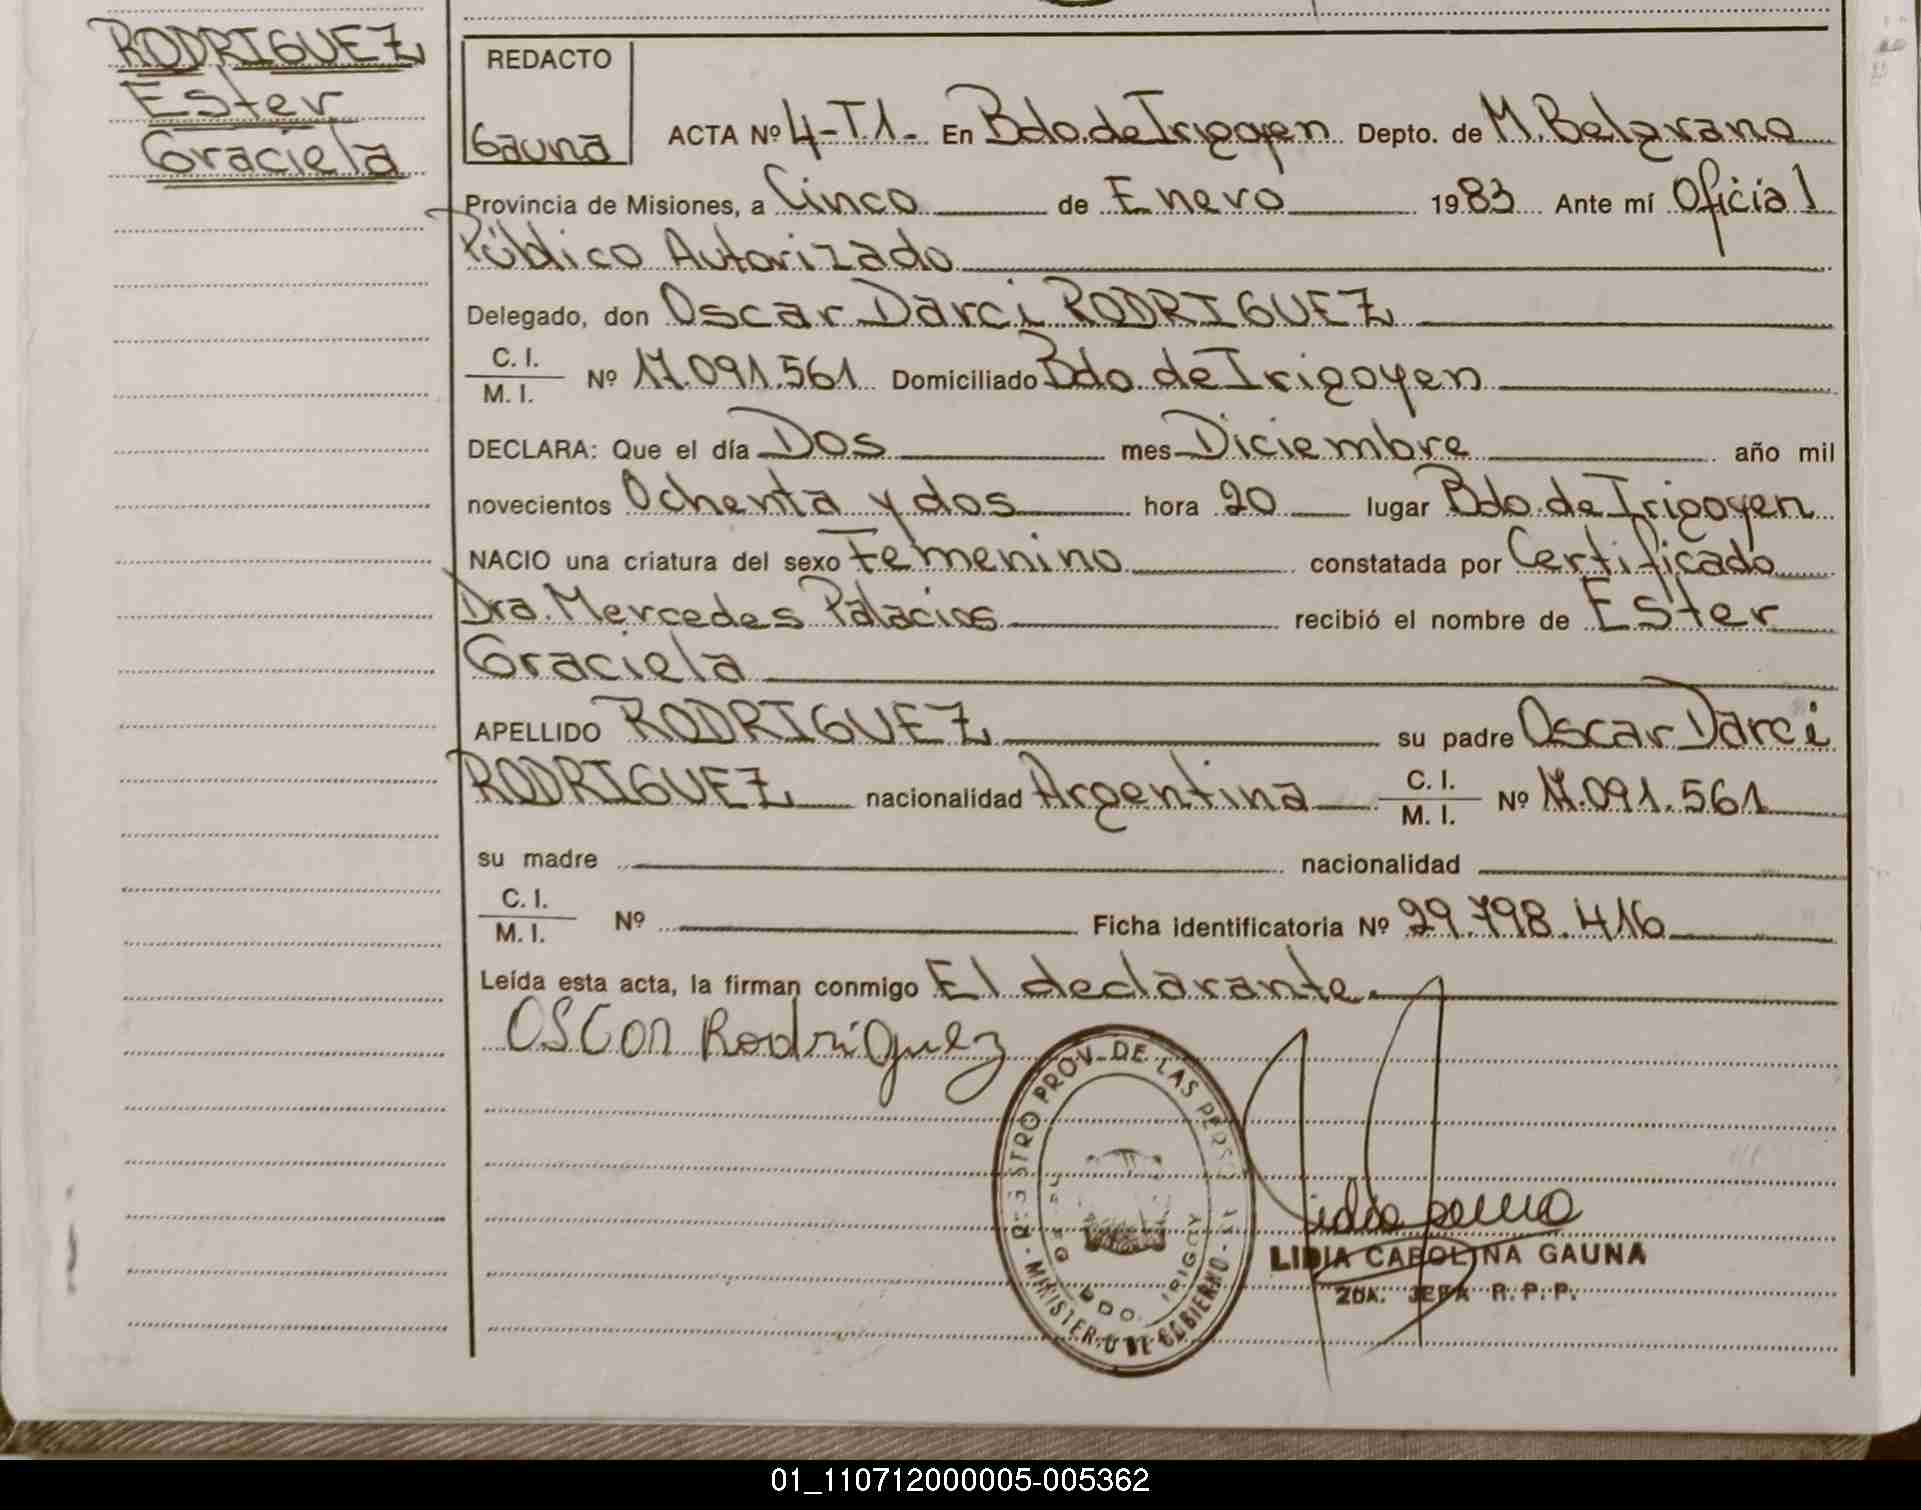 RODRIGUEZ
Ester
Graciela
REDACTO
Gauna
ACTA Nº 4-T1- En Bdo. de Irigoyen Depto. de M. Belgrano
Provincia de Misiones, a Cinco de Enero 1983 Ante mí Oficial
Público Autorizado
Delegado, don Oscar Darci RODRIGUEZ
C. I.
M. I. Nº 17.091.561 Domiciliado Bdo. de Irigoyen
DECLARA: Que el día Dos mes Diciembre año mil
novecientos Ochenta y dos hora 20 lugar Bdo. de Irigoyen
NACIO una criatura del sexo Femenino constatada por Certificado
Dra. Mercedes Palacios recibió el nombre de Ester
Graciela
APELLIDO RODRIGUEZ su padre Oscar Darci
RODRIGUEZ nacionalidad Argentina C. I. M. I. Nº 17.091.561
su madre nacionalidad
C. I.
M. I. Nº Ficha identificatoria Nº 29.798.416
Leída esta acta, la firman conmigo El declarante.
OSCar Rodríguez
PROV. DE LAS
MINISTERIO DE GOBIERNO
BDO. IRIGOY
LIDIA CAROLINA GAUNA
2DA. JEFA R.P.P.
01_110712000005-005362